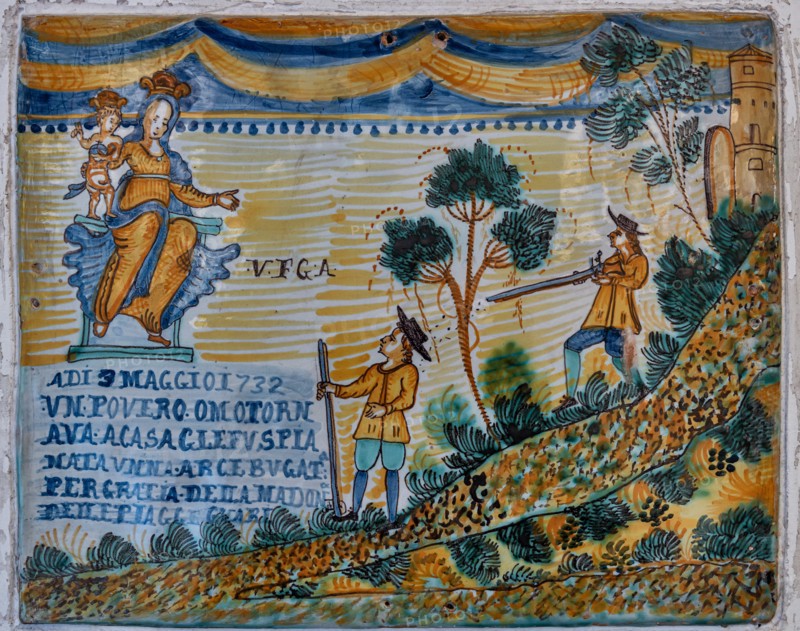 V.F.G.A
ADI 3 MAGGIO 1732
VN.POVERO.OMO TORN
AVA.A CASA GLE FV SPIA
NATA VNNA.ARCEBVGAT:
PER GRATIA.DELLA MADON
DELLE PIAGGE GVARI